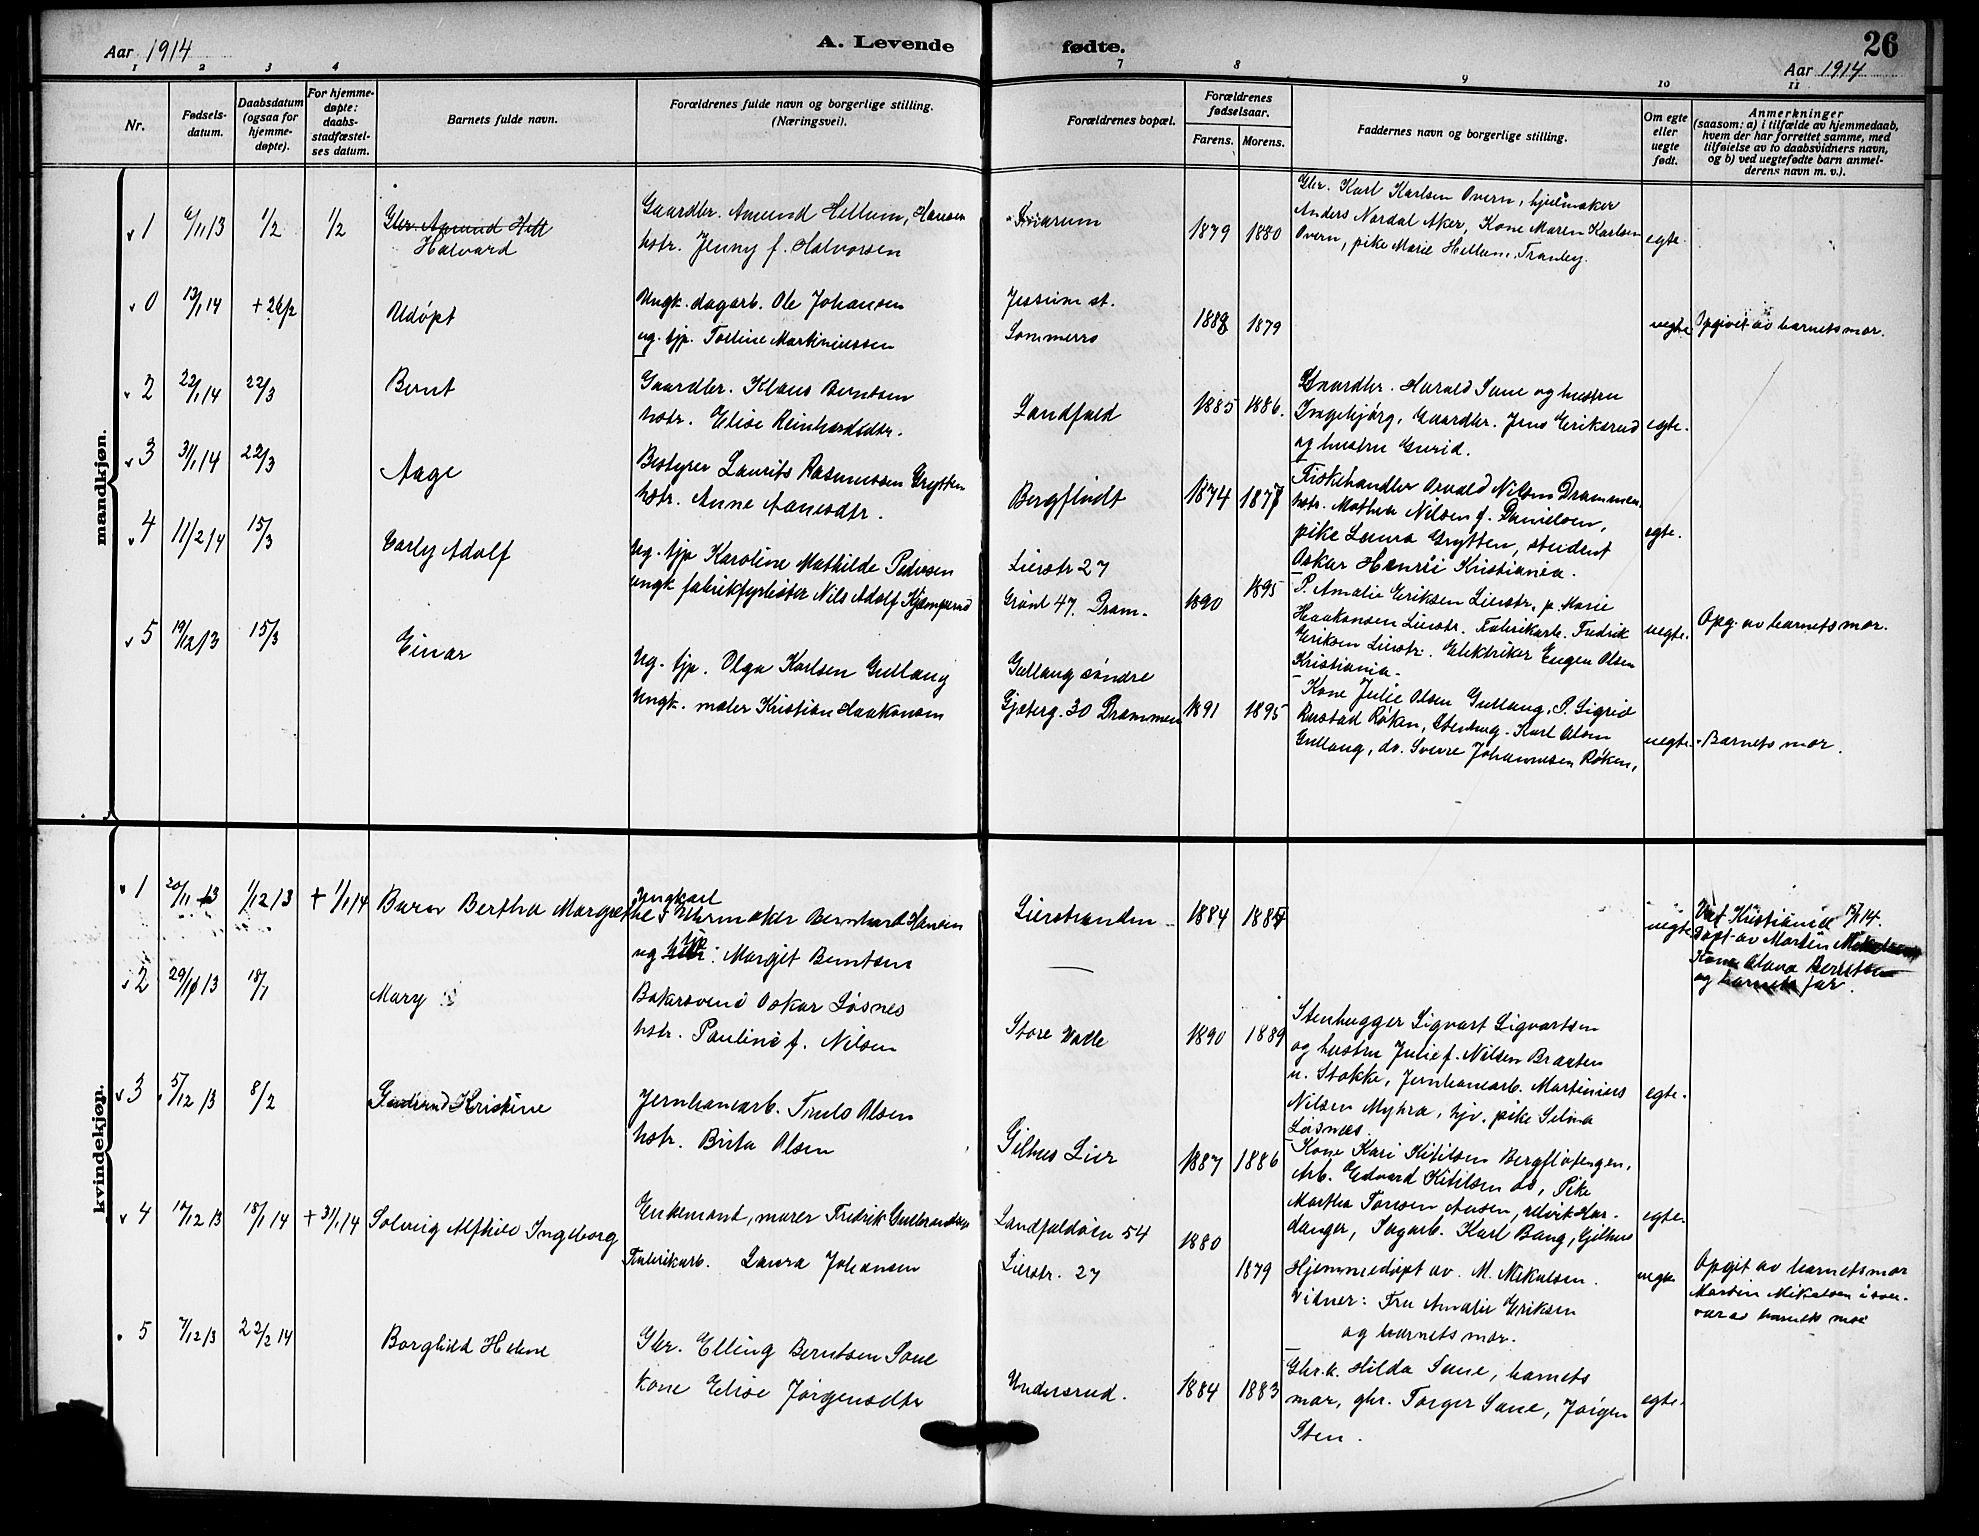 Aar 1914
A. Levende fødte.
26
Aar 1914
1 2 3 4 7 8 9 10 11
Nr.
Fødsels-
datum.
Daabsdatum
(ogsaa for
hjemme-
døpte).
For hjemme-
døpte:
daabs-
stadfæstel-
ses datum.
Barnets fulde navn.
Forældrenes fulde navn og borgerlige stilling.
(Næringsvei).
Forældrenes bopæl.
Forældrenes
fødselsaar.
Farens.
Morens.
Faddernes navn og borgerlige stilling.
Om egte
eller
uegte
født.
Anmerkninger
(saasom: a) i tilfælde av hjemmedaab,
hvem der har forrettet samme, med
tilføielse av to daabsvidners navn,
og b) ved uegtefødte barn anmel-
derens navn m. v.).
mandkjøn.
1 6/11 13 1/2 1/2
Gbr. Amund Hell
Halvard
Gaardbr. Amund Hellum, Hansen
hstr. Jenny f. Halvorsen
1879 1880
Gbr. Karl Karlsen Overn, hjulmaker
Anders Nordal Aker, Kone Maren Karlsen
Overn, pike Marie Hellum, Tranby.
egte.
0 13/1 14 + 26/2
Udøpt
Ungk. dagarb. Ole Johansen
ug. tjp. Tolline Martiniussen
Jessum st.
Sommerro
1888 1879
uegte
Opgivet av barnets mor.
2 22/1 14 22/3
Bernt
Gaardbr. Klaus Berntsen
hstr. Elise Reinhardsdtr.
Landfald
1885 1886.
Gaardbr. Harald Sane og hustru
Ingebjörg, Gaardbr. Jens Eriksrud
og hustru Gurid.
egte.
3 31/1 14 22/3
Aage
Bestyrer Laurits Rasmussen Grytten
hstr. Anne Aanesdtr.
Bergflødt
1874 1877
Fiskehandler Osvald Nilsen Drammen,
hstr. Mathea Nilsen f. Danielsen,
pike Laura Grytten, student
Oskar Henrii Kristiania.
egte.
4 11/2 14 15/3
Carly Adolf
Ug. tjp Karoline Mathilde Pedersen
ungk fabrikfyrbøter Nils Adolf Kjæmperud
Lierstr 27
Grønl 47. Dram.
1890 1895
P. Amalie Eriksen Lierstr, p. Marie
Haakonsen Lierstr. Fabrikarb. Fredrik
Eriksen Lierstr. Elektriker Eugen Olsen
Kristiania.
uegte.
Opg. av barnets mor.
5 19/12 13 15/3
Einar
Ug. tjp. Olga Karlsen Gullaug
Ungk. maler Kristian Haakonsen
Gullaug søndre
Gjeterg. 30 Drammen
1891 1895
Kone Julie Olsen Gullaug, P. Sigrid
Røken, Stenhug. Karl Olsen
Gullaug, do. Sverre Johannesen Røken,
uegte.
Barnets mor.
kvindekjøn.
1 20/11 13 1/12 13 + 1/1 14
Buran Bertha Margrethe
Ungkarl
Uhrmaker Bernhard Hansen
ug tjp: Margit Berntsen
Lierstranden
1884 1884
uegte
Kristiania
Døpt av Martin
Kone Olava Berntsen
og barnets far.
2 29/10 13 18/1
Mary
Bakersvend Oskar Løsnes
hstr. Pauline f. Nilsen
Store Valle
1890 1889
Stenhugger Sigvart Sigvartsen
og hustru Julie f. Nilsen Braaten
n. Stokke, Jernbanearb. Martinius
Nilsen Myhra, hjv. pike Selma
Løsnes.
egte.
3 5/12 13 8/2
Gudrund Kristine
Jernbanearb. Truls Olsen
hstr. Brita Olsen
Gilhus Lier
1887 1886
Kone Kari Kittilsen Bergfløtengen,
Arb. Edvard Kittilsen do, Pike
Martha Tonsen Aasen, Ulvik Har-
danger, Sagarb. Karl Bang, Gilhus
egte.
4 17/12 13 18/1 14 + 31/1 14
Solveig Alfhild Ingeborg
Enkemand, murer Fredrik Gulbrandsen
Fabrikarb. Laura Johansen
Landfaldøien 54
Lierstr. 27
1880 1879
Hjemmedøpt av M. Mikalsen.
Vidner: Fru Amalie Eriksen
og barnets mor.
uegte
Opgit av barnets mor
Martin Mikalsen
barnets mor
5 7/12 13 22/2 14
Borghild Helene
Gbr. Elling Berntsen Sane
Kone Elise Jörgensdtr
Undersrud.
1884 1883
Gbr.k. Hilda Sane, barnets
mor, gbr. Torger Sane, Jörgen
Sten.
egte.